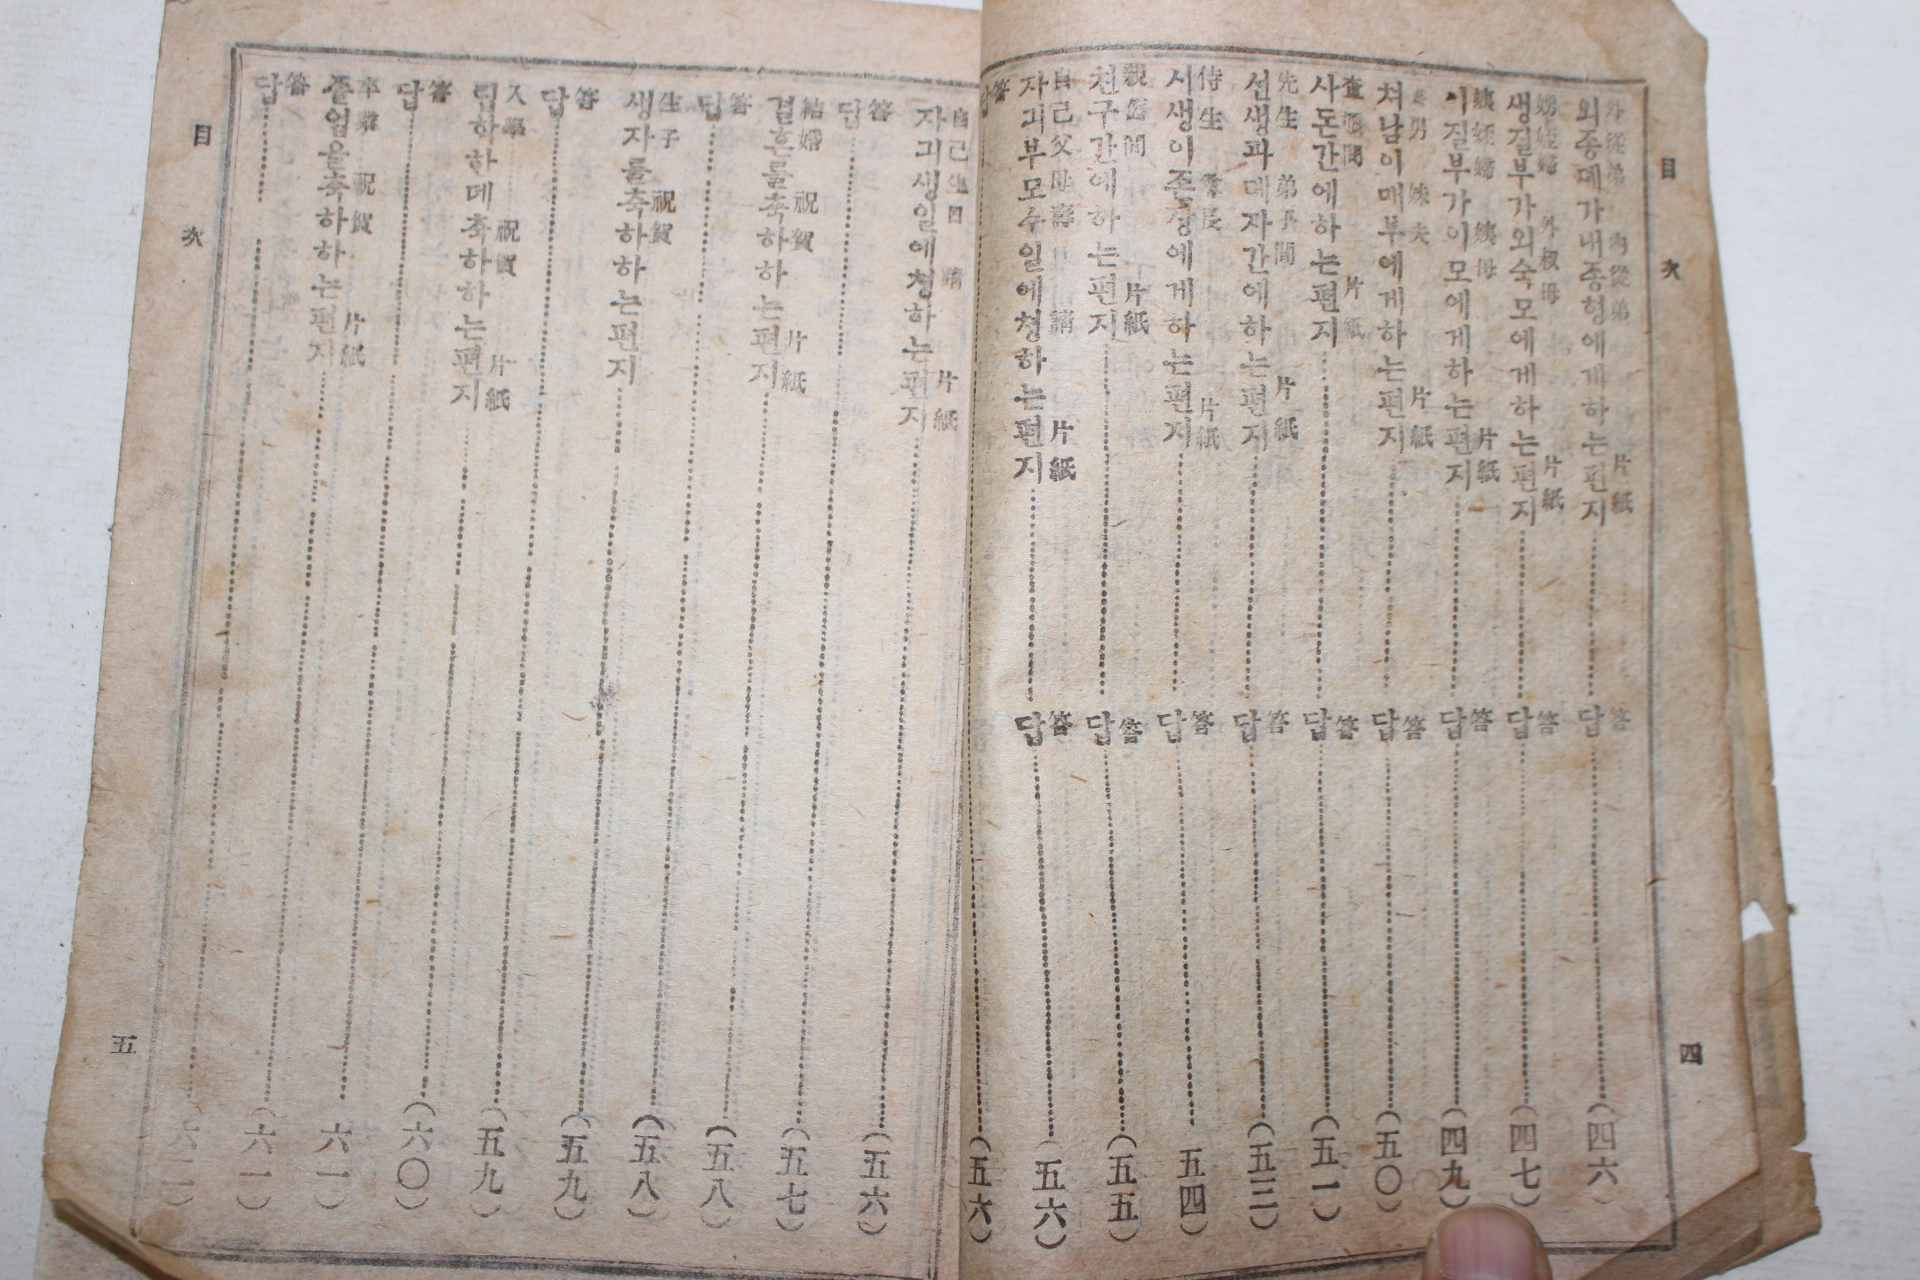 目次
四
외종뎨가내종형에게하는편지 답 (四六)
外從弟 內從弟 片紙 答
생질부가외숙모에게하는편지 답 (四七)
甥姪婦 外叔母 片紙 答
이질부가이모에게하는편지 답 (四九)
姨姪婦 姨母 片紙 答
처남이매부에게하는편지 답 (五〇)
男 妹夫 片紙 答
사돈간에하는편지 답 (五一)
査頓間 片紙 答
선생과뎨자간에하는편지 답 (五三)
先生 弟子間 片紙 答
시생이존장에게하는편지 답 五四)
侍生 尊長 片紙 答
친구간에하는편지 답 (五五)
親舊間 片紙 答
자긔부모수일에쳥하는편지 답 五六)
自己父母壽日 請 片紙 答
답 (五六)
答
자긔생일에쳥하는편지 (五六)
自己生日 請 片紙
답 (五七)
答
결혼을축하하는편지 (五八)
結婚 祝賀 片紙
답 (五八)
答
생자를축하하는편지 (五九)
生子 祝賀
답 (五九)
答
입학하데축하하는편지 (六〇)
入學 祝賀 片紙
답 六一)
答
졸업을축하하는편지 (六一)
卒業 祝賀 片紙
답
答
目次
五